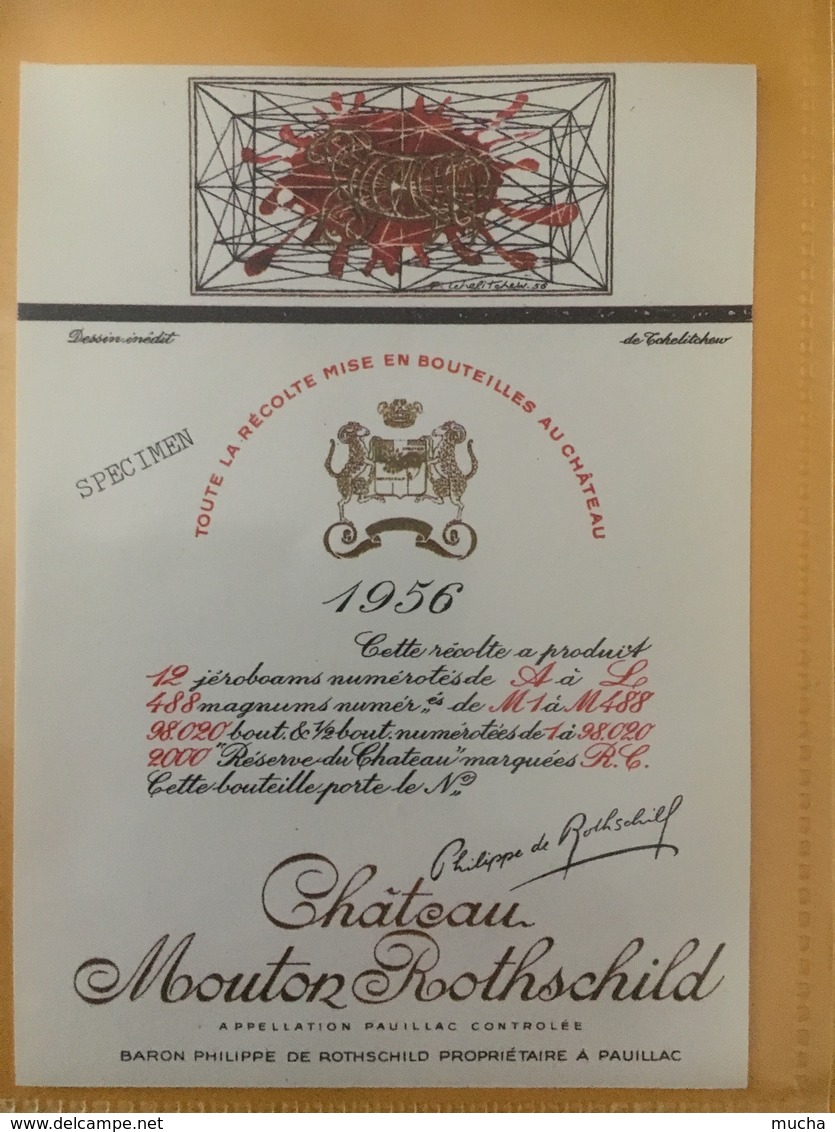 P. Tchelitchew. 56
Dessin inédit
de Tchelitchew
TOUTE LA RÉCOLTE MISE EN BOUTEILLES AU CHÂTEAU
SPECIMEN
1956
Cette récolte a produit
12 jéroboams numérotés de A à L
488 magnums numér„és de M1 à M488
98.020 bout. & ½ bout. numérotées de 1 à 98.020
2000 "Réserve du Chateau" marquées R.C.
Cette bouteille porte le No„
Philippe de Rothschild
Château
Mouton Rothschild
APPELLATION PAUILLAC CONTROLÉE
BARON PHILIPPE DE ROTHSCHILD PROPRIÉTAIRE À PAUILLAC
www.delcampe.net
mucha